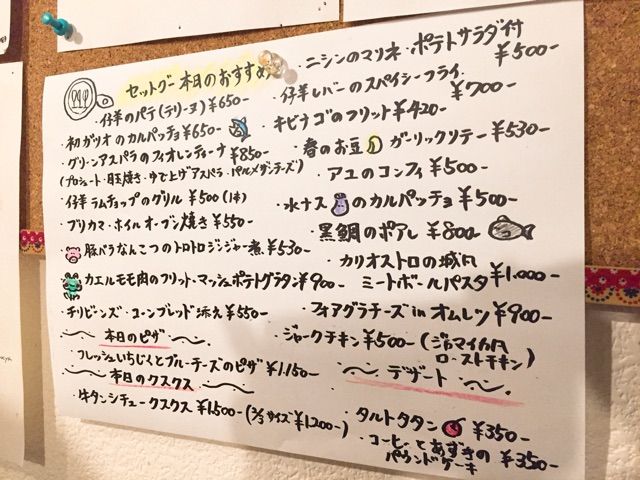 セットグー 本日のおすすめ
・仔羊のパテ(テリーヌ)¥650-
・初ガツオのカルパッチョ¥650-
・グリーンアスパラのフィオレンティーナ¥850-
(プロシュート・目玉焼き・ゆで上げアスパラ・パルメザンチーズ)
・仔羊 ラムチョップのグリル ¥500(1本)
・ブリカマ・ホイルオーブン焼き ¥550-
豚バラなんこつのトロトロジンジャー煮¥530-
カエルモモ肉のフリット・マッシュポテトグラタン¥900-
・チリビーンズ・コーンブレッド添え ¥550-
本日のピザ
・フレッシュいちじくとブルーチーズのピザ ¥1.150-
本日のクスクス
・牛タンシチュークスクス ¥1,500-(2/3サイズ¥1200-)
・ニシンのマリネ・ポテトサラダ付
¥500-
・仔羊レバーのスパイシーフライ
¥700-
・キビナゴのフリット¥420-
・春のお豆 ガーリックソテー¥530-
・アユのコンフィ ¥500-
・水ナス のカルパッチョ ¥500-
・黒鯛のポアレ ¥800-
・カリオストロの城風
ミートボールパスタ ¥1.000-
・フォアグラチーズ in オムレツ ¥900-
・ジャークチキン ¥500-(ジャマイカ風
ローストチキン)
デザート
・タルトタタン ¥350-
・コーヒーとあずきの
パウンドケーキ ¥350-